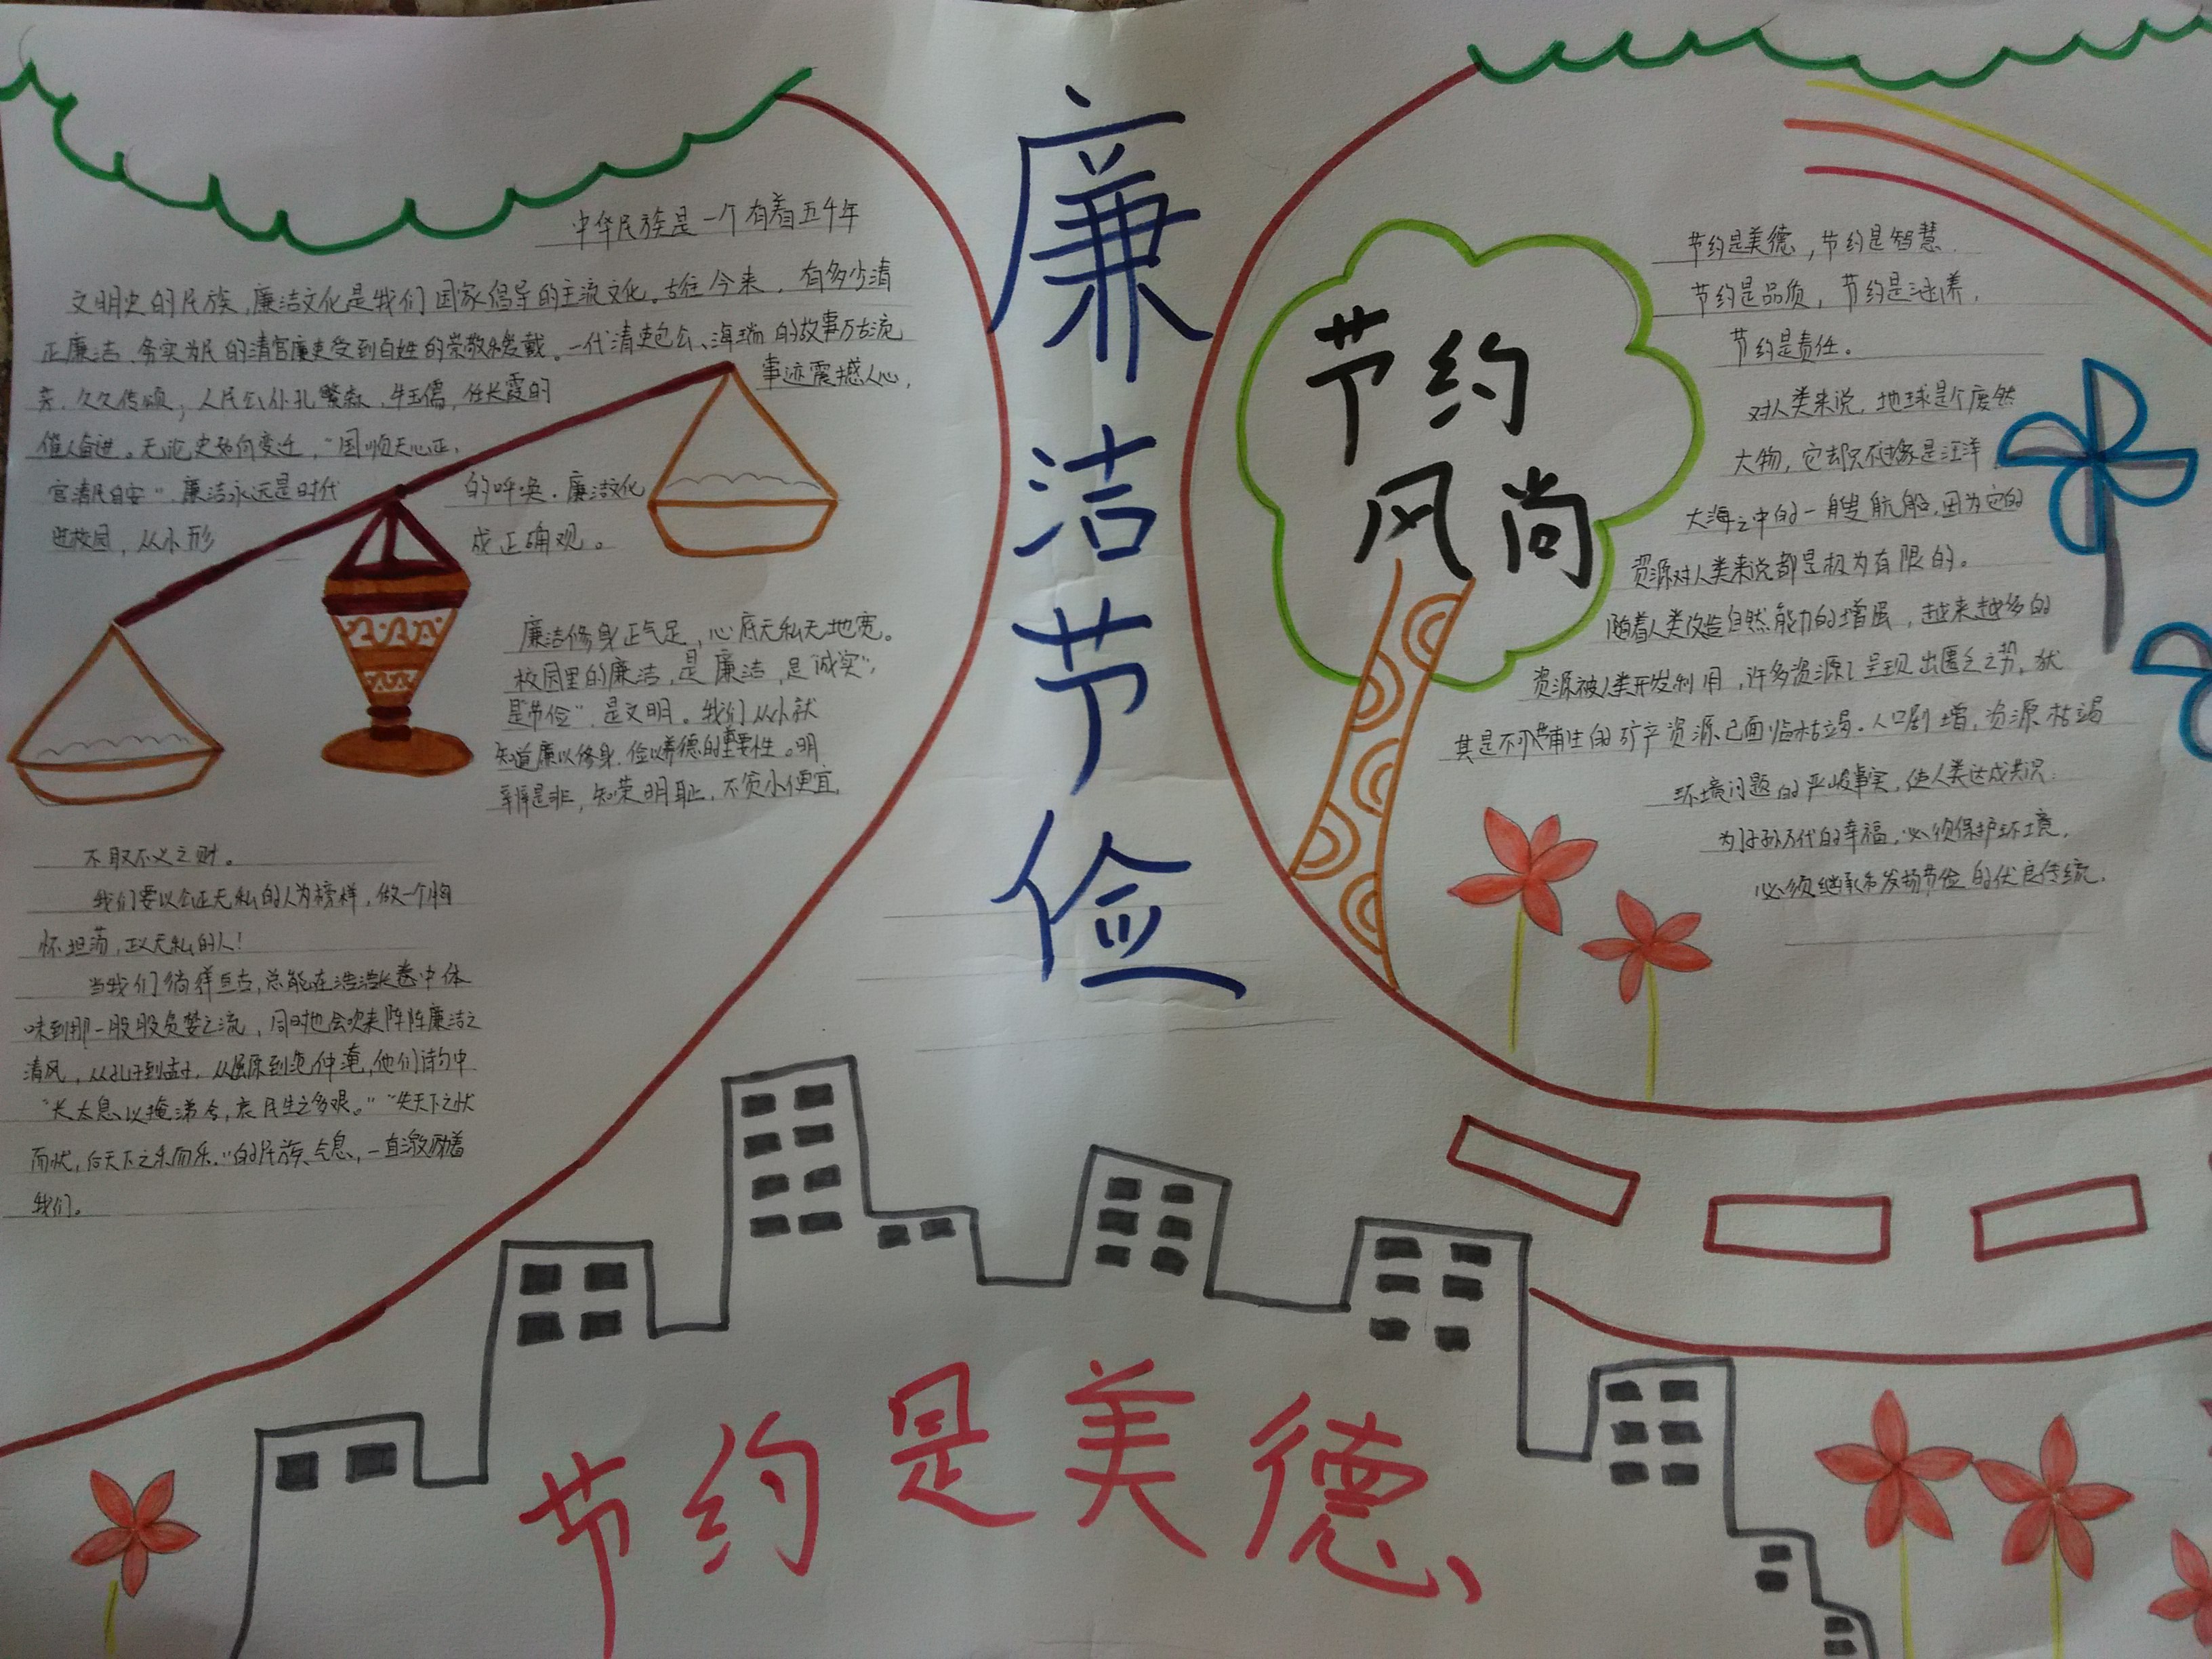 廉洁节俭
中华民族是一个有着五千年
文明史的民族,廉洁文化是我们国家倡导的主流文化。古往今来,有多少清
正廉洁、务实为民的清官廉吏受到百姓的崇敬和爱戴。一代清吏包公、海瑞的故事万古流
芳,久久传颂;人民公仆孔繁森、牛玉儒,任长霞的
事迹震撼人心,
催人奋进。无论史如何变迁,“国顺天心正,
官清民自安”廉洁永远是时代
的呼唤。廉洁文化
进校园,从小形
成正确观。
廉洁修身正气足,心底无私天地宽。
校园里的廉洁,是廉洁,是“诚实”,
是“节俭”,是文明。我们从小就
知道廉以修身,俭以养德的重要性。明
辨是非,知荣明耻,不贪小便宜,
不取不义之财。
我们要以公正无私的人为榜样,做一个胸
怀坦荡,正义无私的人!
当我们徜徉亘古,总能在浩浩长卷中体
味到那一股股贪婪之流,同时也会吹来阵阵廉洁之
清风,从孔子到孟子,从屈原到范仲淹,他们诗中
“长太息以掩涕兮,哀民生之多艰。”“先天下之忧
而忧,后天下之乐而乐.”的民族气息,一直激励着
我们。
节约
风尚
节约是美德,节约是智慧
节约是品质,节约是涵养,
节约是责任。
对人类来说,地球是个庞然
大物,它却只不过像是汪洋
大海之中的一艘航船,因为它的
资源对人类来说都是极为有限的。
随着人类改造自然能力的增强,越来越多的
资源被人类开发利用,许多资源已呈现出匮乏之势,犹
其是不可再生的矿产资源已面临枯竭.人口剧增,资源枯竭
环境问题的严峻事实,使人类达成共识
为了子孙万代的幸福,必须保护环境,
必须继承和发扬节俭的优良传统.
节约是美德